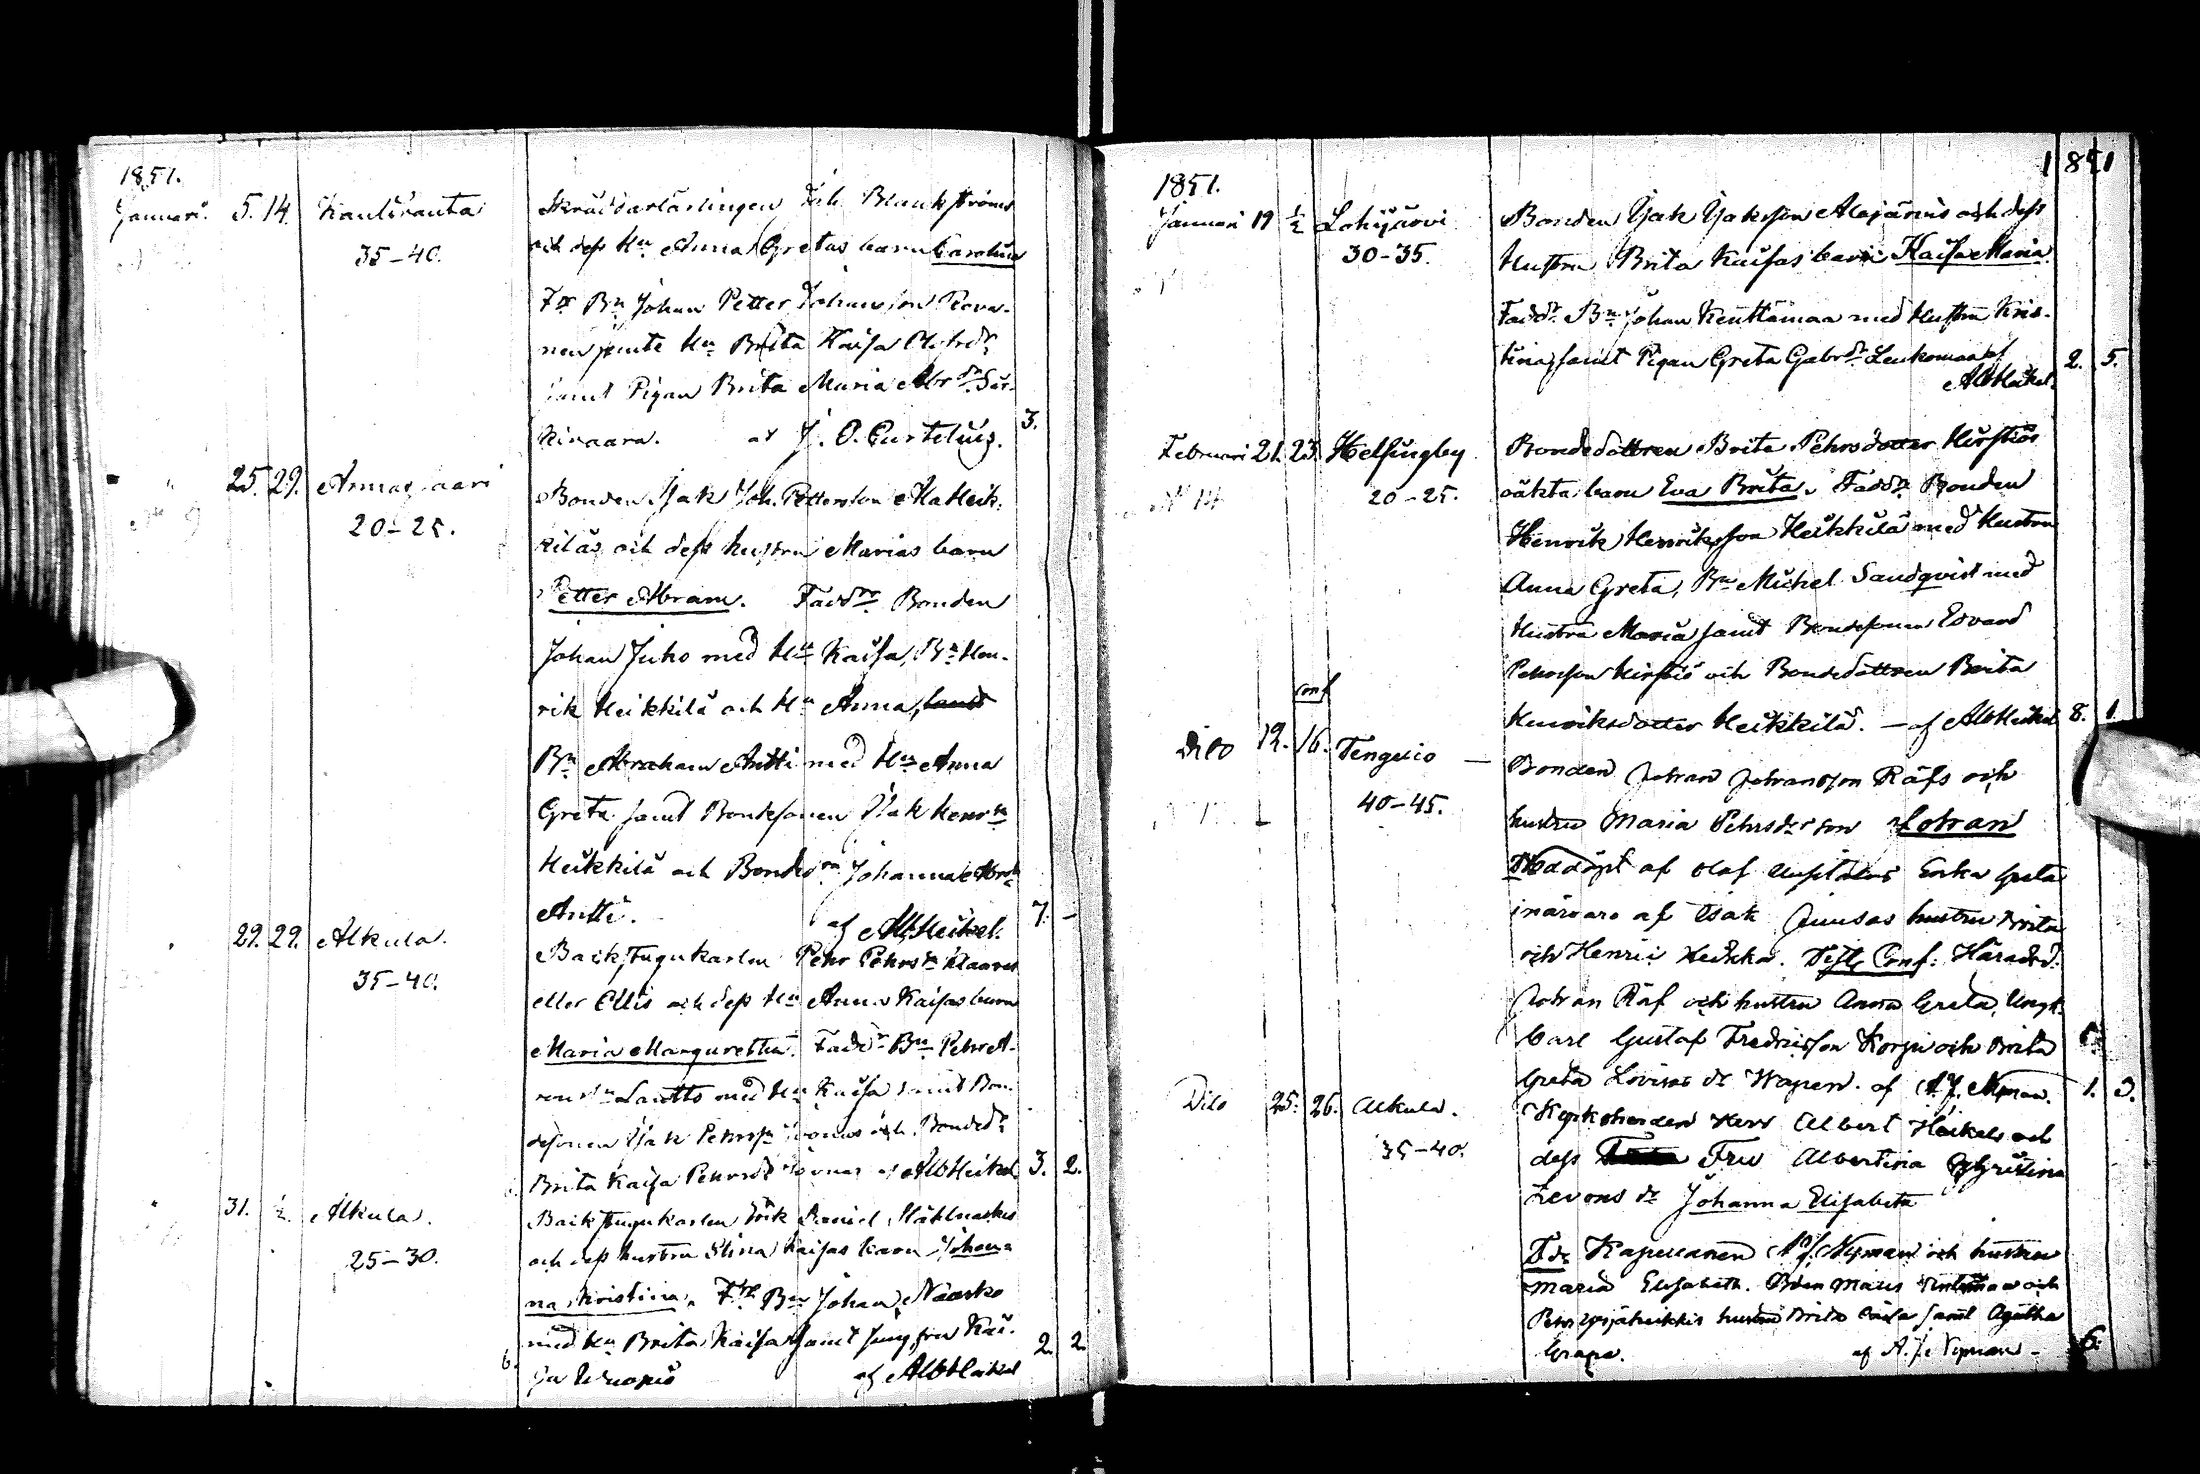 1851.
Januari. 5. 14. Kauliranta
35-40.
Skräddarlärlingen Joh. Blankströms
och dess Hu Anna Gretas barn Carolina
Fdr Bn Johan Petter Johansson Rova-
nen jemte Hu Brita Kaisa Olofsdr
samt Pigan Brita Maria Abrdr Sär-
kivaara. af J. O. Curtelius. 3.
25. 29. Armassaari
20-25.
Bonden Isak Joh. Pettersson AlaHeik-
kiläs och dess hustru Marias barn
Petter Abram. Faddr Bonden
Johan Juho med Hu Kaisa, Bn Hen-
rik Heikkilä och Hu Anna, samt
Bn Abraham Antti med Hu Anna
Greta samt Bondesonen Isak Henrsn
Heikkilä och Bonded. Johanna
Antti. af Alb Heikel. 7. -
29. 29. Alkula.
35-40.
Backstugukarlen Pehr Pehrsn
eller Ellis och dess Hu Anna Kaisas barn
Maria Margaretha. Faddr Bn Pehr A-
ronsn Lantto med Hu Kaisa samt Bon-
desonen Isak Pehrsn och Bondedr
Brita Kaisa Pehrsdr af Alb Heikel 3. 2.
31. ½. Alkula.
25-30.
Backstugukarlen Erik Daniel
och dess hustru Stina Kaisas barn Johan-
na Kristina. Fdr Bn Johan Naarko
med Hu Brita Kaisa samt Jungfru Kai-
sa af Alb Heikel 2. 2.
1851
1851.
Januari 19 ½ Lohijärvi
30-35.
Bonden Isak Isaksson Alajärvis och dess
Hustru Brita Kaisas barn Kaisa Maria.
Faddr. Bn Johan Kenttämaa med Hustru Kris-
tina, samt Pigan Greta Gabrdr Leukomaa af
Alb Heikel. 2. 5.
Februari 21. 23. Helsingby.
20-25.
Bondedottren Brita Pehrsdotter Hirstiös
oäkta barn Eva Brita. Faddr. Bonden
Henrik Henriksson Heikkilä med Hustru
Anna Greta, Bn Michel Sandqvist med
Hustru Maria samt Bondesonen Edvard
Pehrsson Hirstiö och Bondedottren Brita
Henriksdotter Heikkilä. - af Alb Heikel 8. 1.
conf
Dito 12. 16. Tengelio
40-45.
Bonden Johan Johansson Räfs och
hustru Maria Pehrsdr son Johan
Nöddöpt af Olof Greta
i närvaro af Isak Juusas hustru Brita
och Henric Heikka. Test. Conf: Häradsd.
Johan Räf och hustru Anna Greta, Ungk.
Carl Gustaf Fredriksson Korpi och Brita
Greta Lovisa dr Wapen. af A. J. Nyman. 1. 3.
Dito 25. 26. Alkula.
35-40.
Kyrkoherden Herr Albert Heikels och
dess Fru Albertina Christina
Zevons dr Johanna Elisabeta
Fdr Kapellanen A. J. Nyman och hustru
Maria Elisabeth. och
Pehr hustru Brita Cajsa samt Agatha
Grape. af A. J. Nyman - 6.